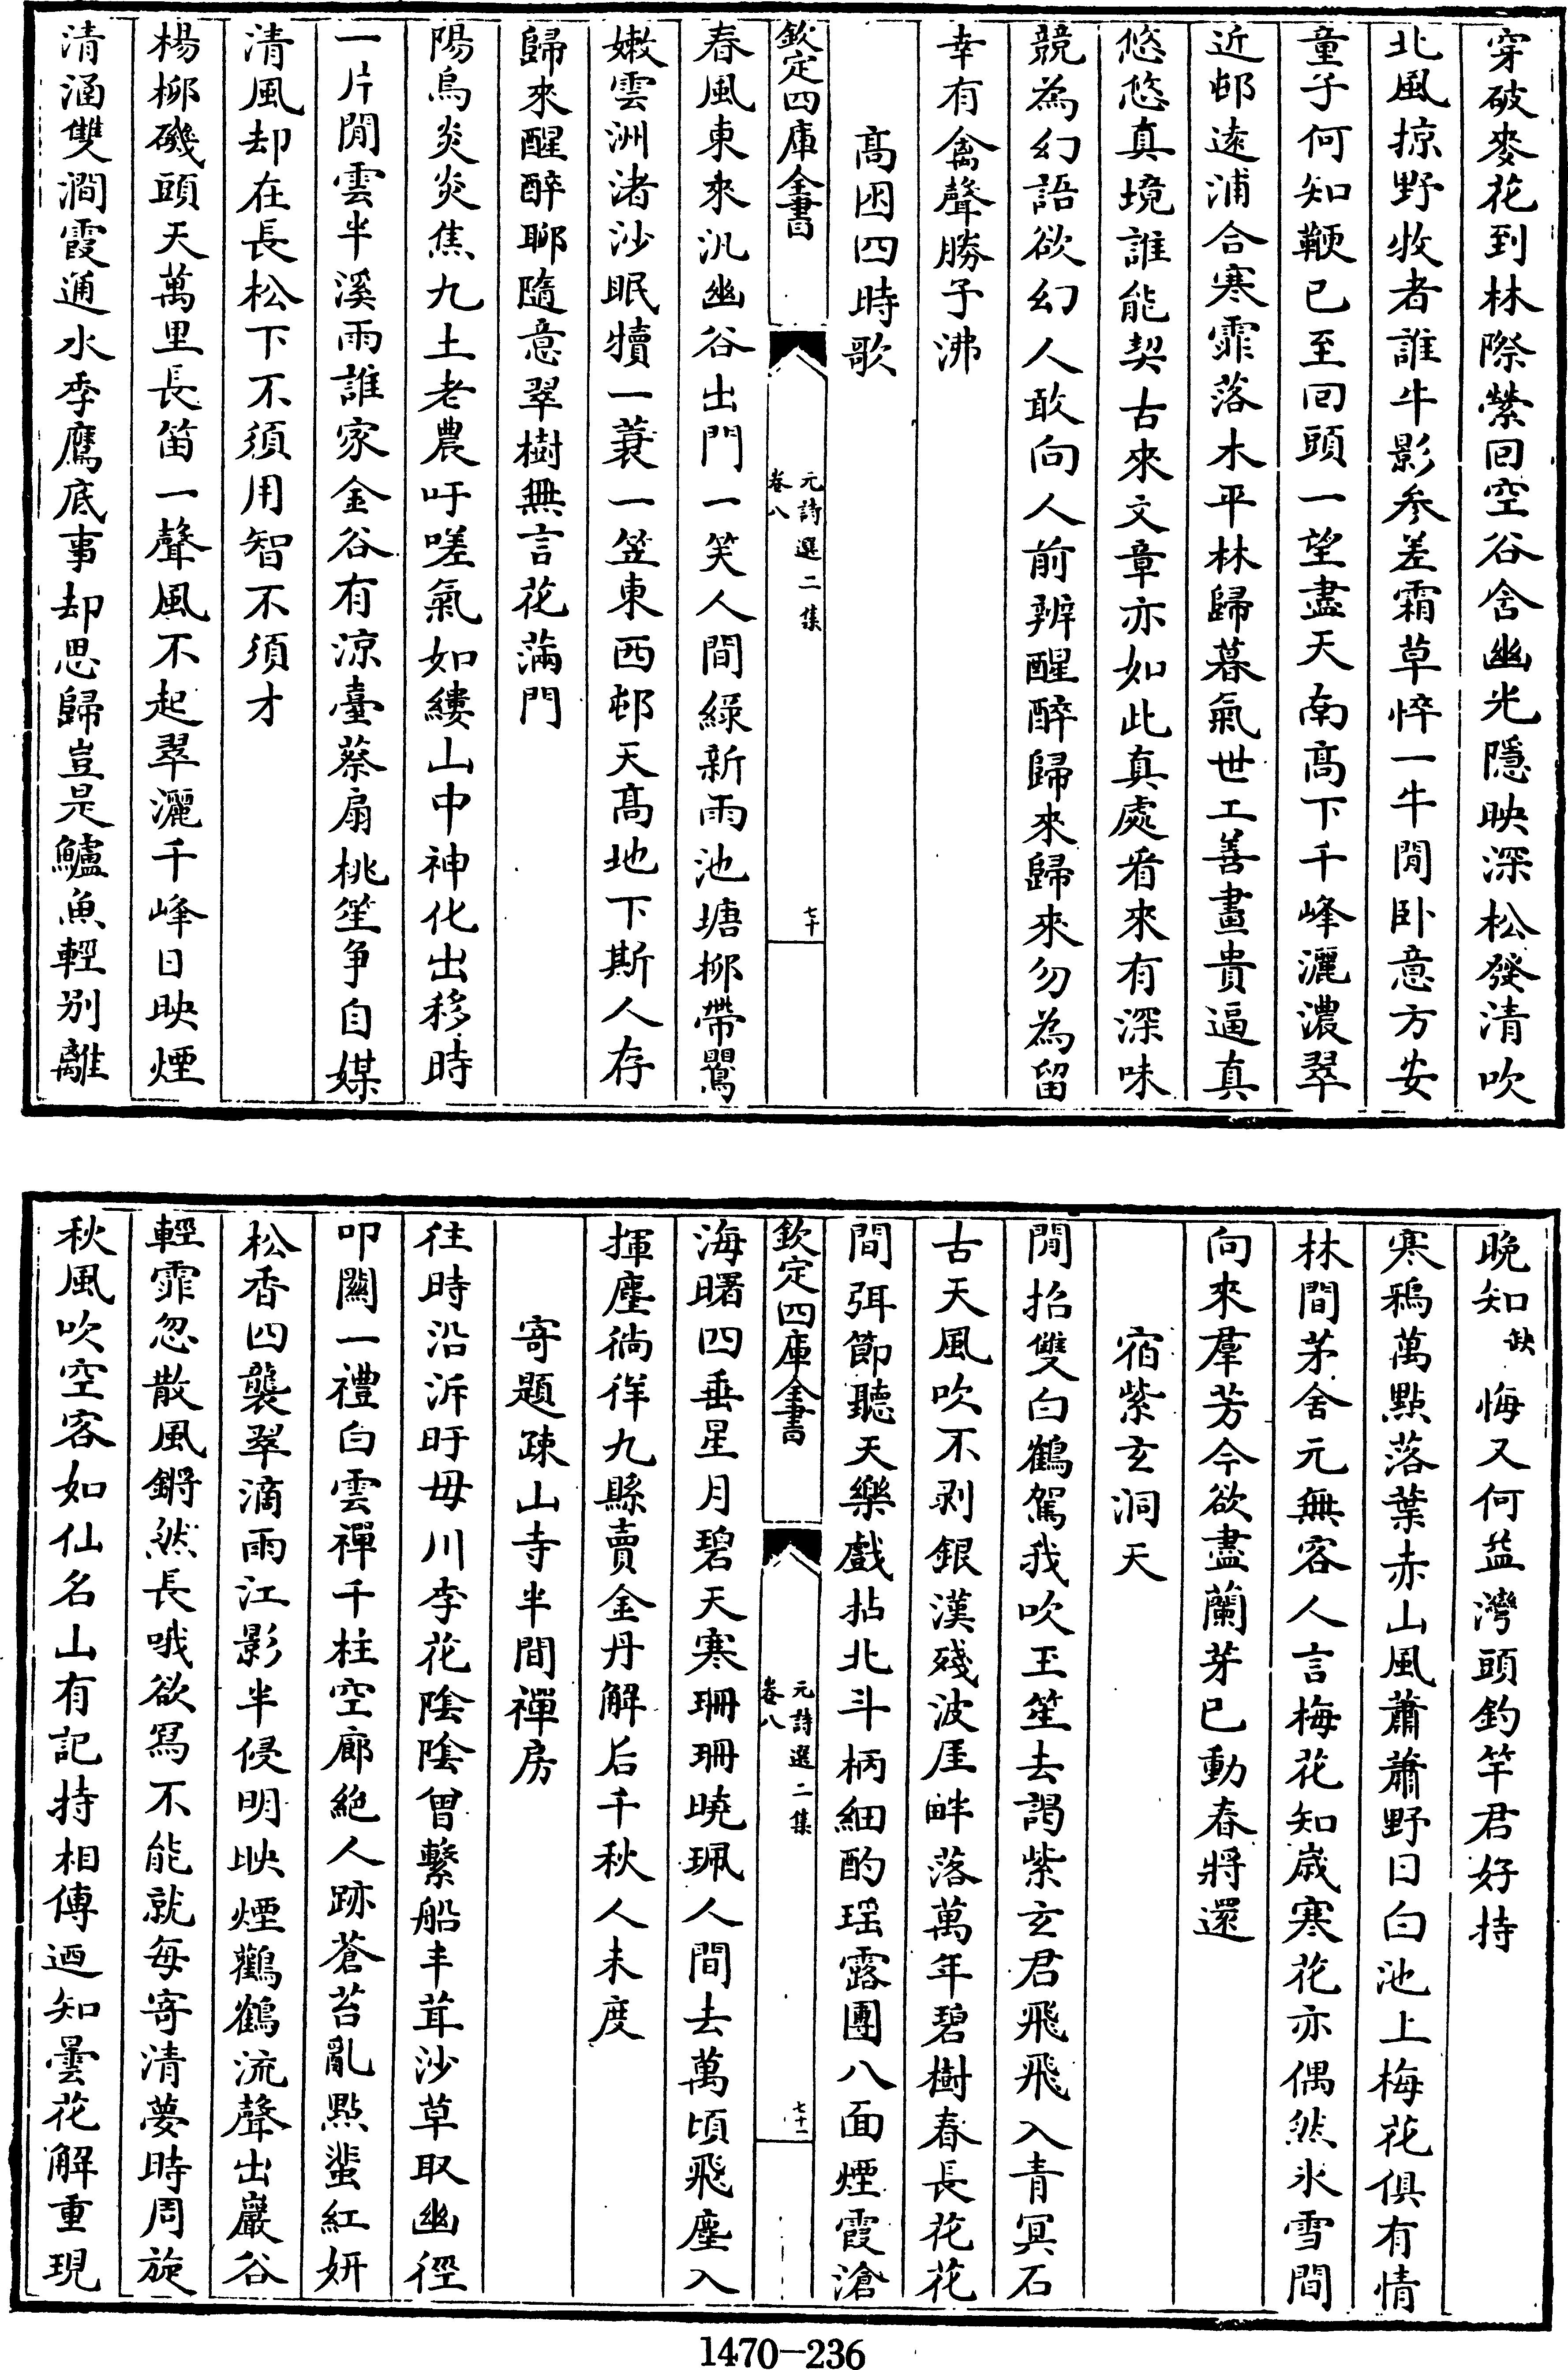 穿破麥花到林際縈回空谷含幽光隱映深松發清吹
北風掠野收者誰牛影參差霜草悴一牛閒卧意方安
童子何知鞭已至回頭一望盡天南高下千峰灑濃翠
近邨遠浦合寒霏落木平林歸暮氣世工善畫貴逼真
悠悠真境誰能契古來文章亦如此真處看來有深味
競為幻語欲幻人敢向人前辨醒醉歸來歸來勿為留
幸有禽聲勝子沸
高困四時歌
欽定四庫全書
元詩選二集
卷八
七十
春風東來汎幽谷出門一笑人間綠新雨池塘柳帶鸎
嫩雲洲渚沙眠犢一蓑一笠東西邨天高地下斯人存
歸來醒醉聊隨意翠樹無言花滿門
陽烏炎炎焦九土老農吁嗟氣如縷山中神化出移時
一片閒雲半溪雨誰家金谷有涼臺蔡扇桃笙争自媒
清風却在長松下不須用智不須才
楊柳磯頭天萬里長笛一聲風不起翠灑千峰日映煙
清涵雙澗霞通水季鷹底事却思歸豈是鱸魚輕別離
晚知缺悔又何益灣頭釣竿君好持
寒鴉萬點落葉赤山風蕭蕭野日白池上梅花俱有情
林間茅舍元無客人言梅花知歲寒花亦偶然氷雪間
向來羣芳今欲盡蘭芽已動春將還
宿紫玄洞天
閒招雙白鶴駕我吹玉笙去謁紫玄君飛飛入青冥石
古天風吹不剥銀漢殘波厓畔落萬年碧樹春長花花
間弭節聽天樂戲拈北斗柄細酌瑶露團八面煙霞滄
欽定四庫全書
元詩選二集
卷八
七十一
海曙四垂星月碧天寒珊珊曉珮人間去萬頃飛塵入
揮塵徜徉九縣賣金丹解后千秋人未度
寄題疎山寺半間禪房
往時沿泝盱毋川李花陰陰曾繫船丰茸沙草取幽徑
叩關一禮白雲禪千柱空廊絶人跡蒼苔亂點蜚紅妍
松香四襲翠滴雨江影半侵明映煙鸛鶴流聲出巖谷
輕霏忽散風鏘然長哦欲寫不能就每寄清夢時周旋
秋風吹空客如仙名山有記持相傳迺知曇花解重現
1470-236